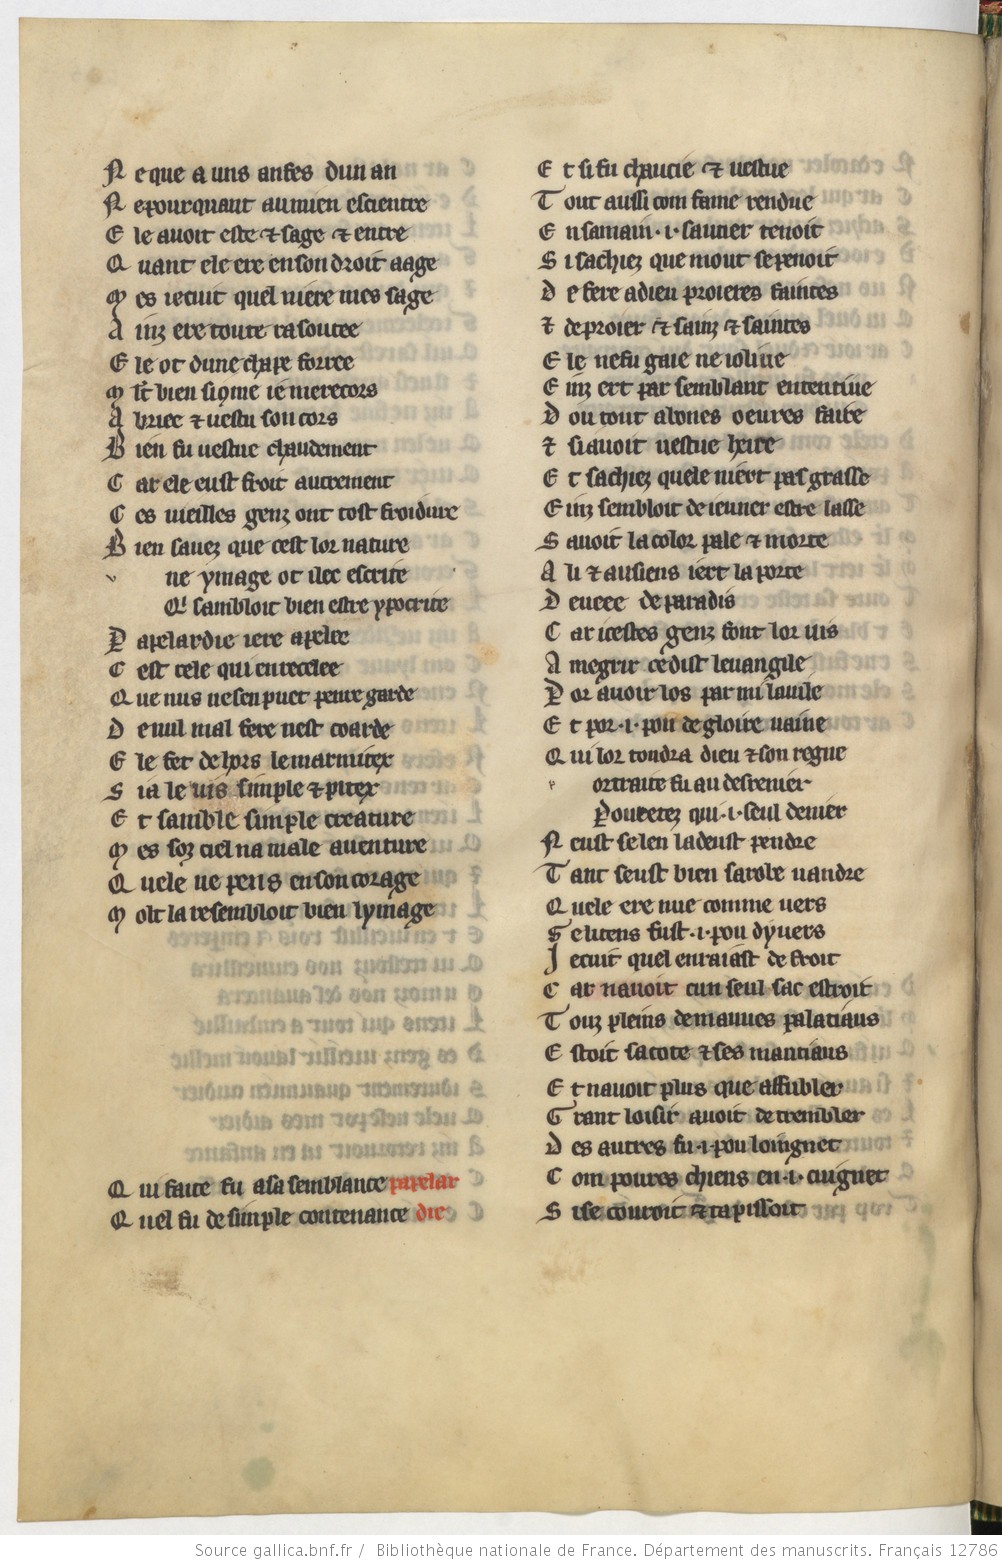 N e que a uns anfes dun an
N eporquant au mien escientre
E le auoit este ⁊ sage ⁊ entre
Q uant ele ere en son droit aage
M es ie cuit quel niere mes sage
A inz ere toute rasoutee
E le ot dune chape forree
M lt bien si ome ie me recors
A briee ⁊ uestu son cors
B ien fu uestue chaudement
C ar ele eust froit autrement
C es vieilles genz ont tost froidure
B ien sauez que cest lor nature
ne ymage ot ilec escrite
Qi sambloit bien estre ypocrite
P apelardie iere apelee
C est cele qui en recelee
Q ue nus ne sen puet penre garde
D e nul mal fere nest coarde
E le fet dehors le marmitex
S i a le uis simple ⁊ pitex
E t samble simple creature
M es soz ciel na male auenture
Q uele ne pens en son corage
M olt la resembloit bien lymage
Q ui faite fu a sa semblance papelar
Q uel fu de simple contenance die
E t si fu chaucie ⁊ uestue
T out aussi com fame rendue
E n sa main .i. sautier tenoit
S i sachiez que mout se penoit
D e fere a dieu proieres faintes
⁊ de proier ⁊ sainz ⁊ saintes
E le ne fu gaie ne ioliue
E inz ert par semblant ententiue
D ou tout a bones oeures faire
⁊ si auoit uestue here
E t sachiez quele niert pas grasse
E inz sembloit de ieuner estre lasse
S auoit la color pale ⁊ morte
A li ⁊ au siens iert la porte
D eueee de paradis
C ar icestes genz font lor uis
A megrir ce dist leuangile
P or auoir los par mi la uile
E t por .i. pou de gloire uaine
Q ui lor toudra dieu ⁊ son regne
p ortraite fu au desrenier
Pouretez qui .i. seul denier
N eust se len la deust pendre
T ant seust bien sa robe uandre
Q uele ere nue comme uers
S e li tens fust .i. pou dyuers
J e cuit quel enraiast de froit
C ar nauoit cun seul sac estroit
T ouz pleins de mauues palatiaus
E stoit sa cote ⁊ ses mantiaus
E t nauoit plus que affubler
G rant loisir auoit de trembler
D es autres fu .i. pou loingnet
C om poures chiens en .i. cuignet
S ise couroit ⁊ tapissoit
Source gallica.bnf.fr / Bibliothèque nationale de France. Département des manuscrits. Français 12786